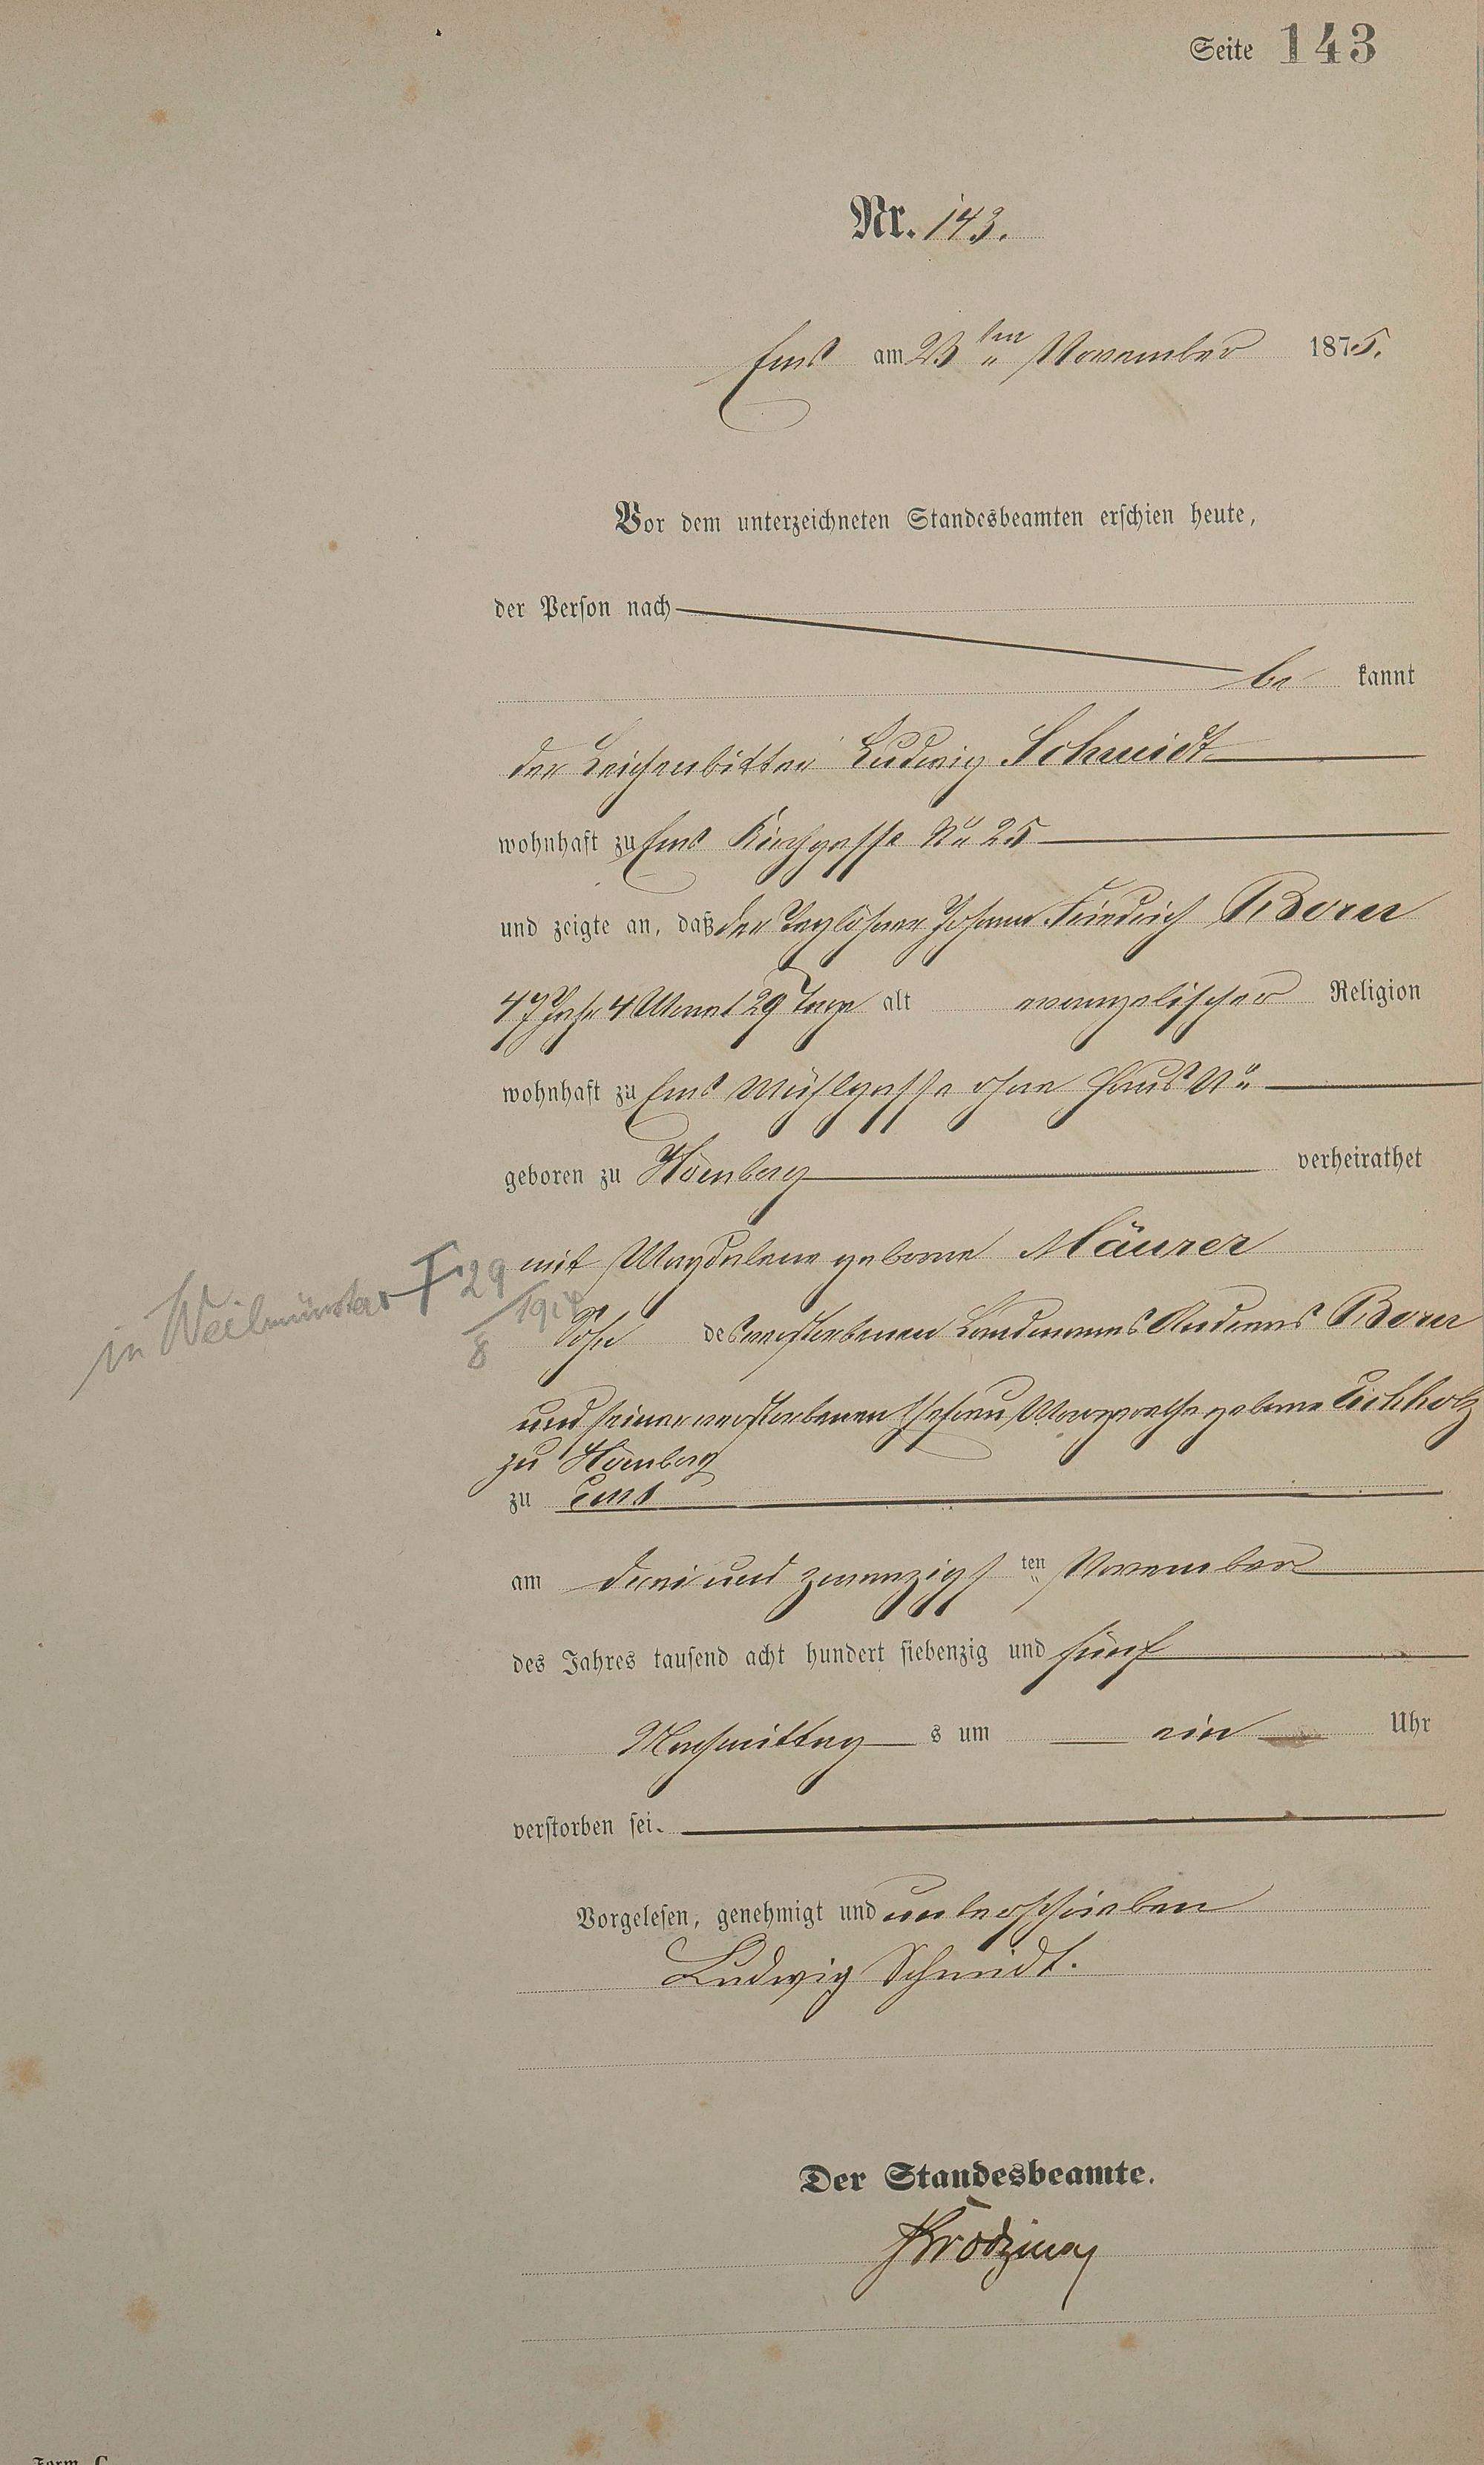 Seite 143
Nr. 143.
Ems am 23 ten November 1875.
Vor dem unterzeichneten Standesbeamten erschien heute,
der Person nach
be kannt
der Leichenbitter Ludwig Schmidt
wohnhaft zu Ems Kirchgasse No 25
und zeigte an, daß der Taglöhner Johann Friedrich Born
47 Jahr 4 Monat 29 Tage alt evangelischer Religion
wohnhaft zu Ems Mühlgasse ohne Haus No
geboren zu Hömberg verheirathet
mit Magdalene geborne Mäurer
in Weilmünster † 29
8
Sohn des verstorbenen Landmanns Andreas Born
und seiner verstorbenen Ehefrau Margarethe geborne Eichholz
zu Hömberg
zu Ems
am drei und zwanzigs ten November
des Jahres tausend acht hundert siebenzig und fünf
Nachmittag s um ein Uhr
verstorben sei.
Vorgelesen, genehmigt und unterschrieben
Ludwig Schmidt.
Der Standesbeamte.
Form. C